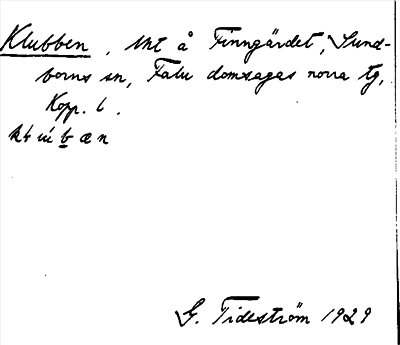 Klubben, Mt å Finngärdet, Sund-
borns sn, Falu domsagas norra tg,
Kopp. l.
G. Tideström 1929